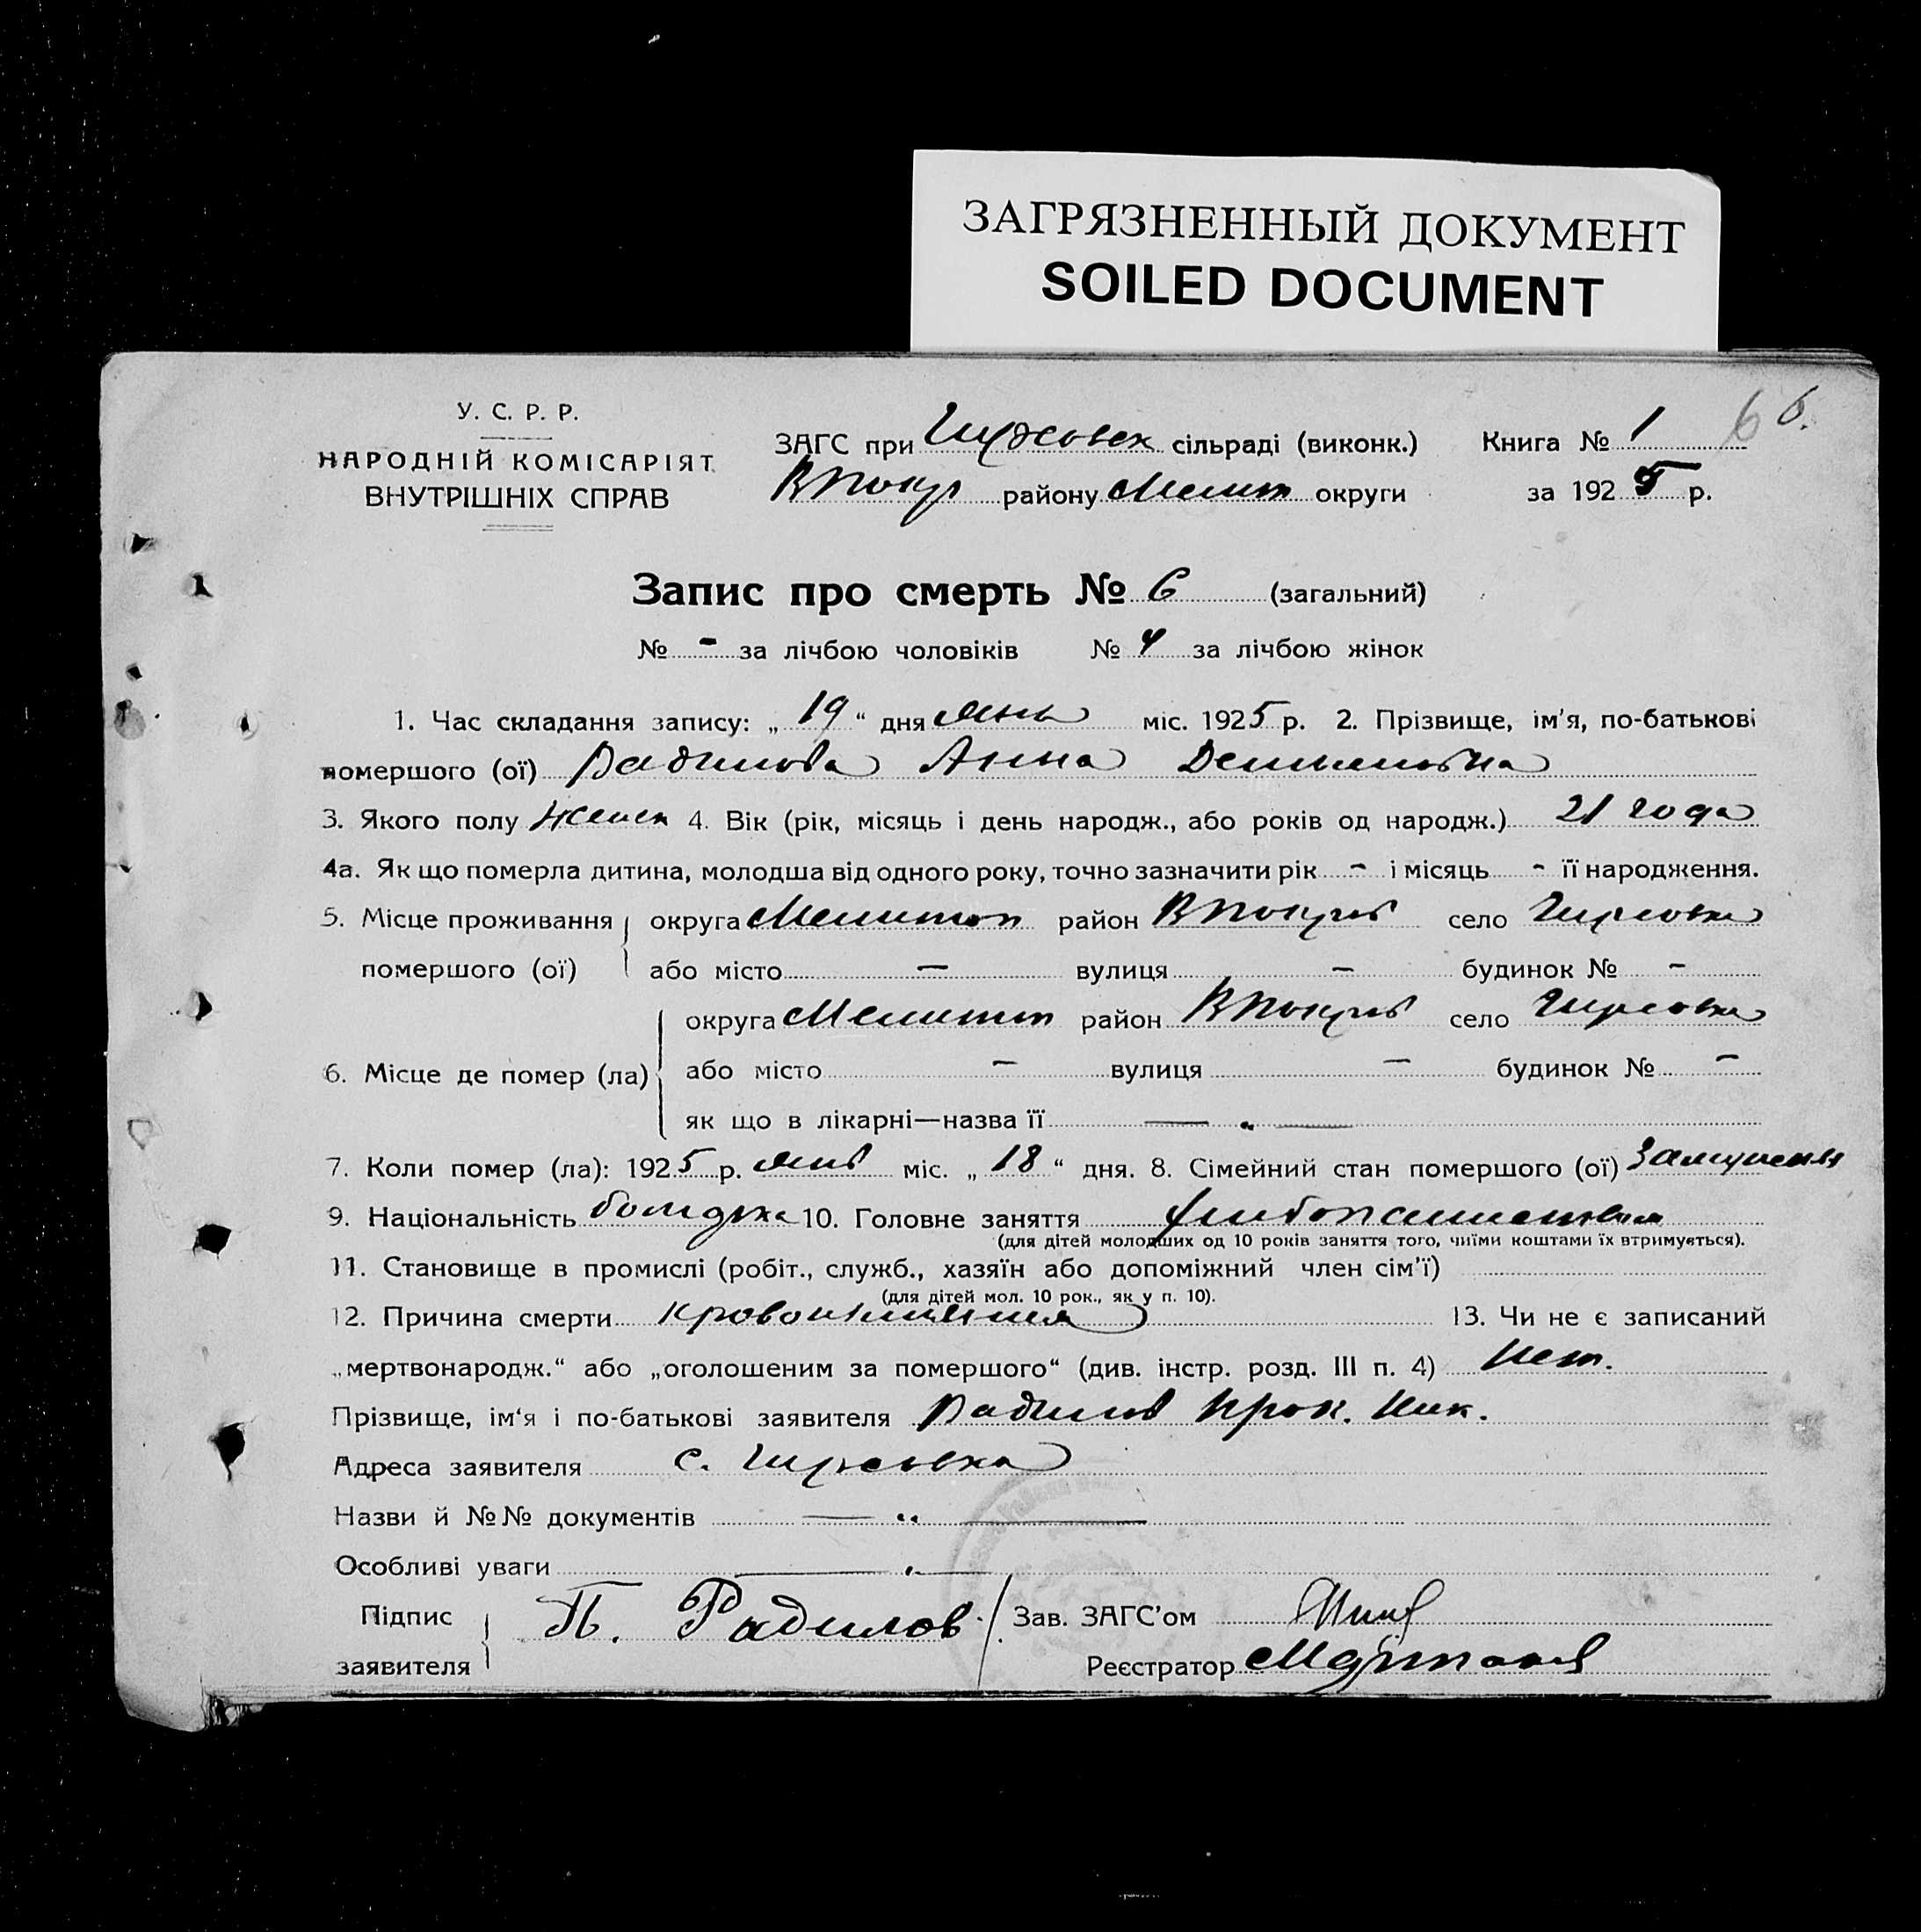 ЗАГРЯЗНЕННЫЙ ДОКУМЕНТ
SOILED DOCUMENT
У. С. Р. Р.
НАРОДНІЙ КОМІСАРІЯТ
ВНУТРІШНІХ СПРАВ
ЗАГС при сільраді (виконк.) Книга № 1 6 6.
району Мелит округи за 1925 р.
Запис про смерть № 6 (загальний)
№ - за лічбою чоловіків № 4 за лічбою жінок
1. Час складання запису: „19“ дня міс. 1925 р. 2. Прізвище, ім'я, по-батькові
помершого (ої) Радилова Анна
3. Якого полу женск 4. Вік (рік, місяць і день народж., або років од народж.) 21 года
4а. Як що померла дитина, молодша від одного року, точно зазначити рік - і місяць - її народження.
5. Місце проживання округа Мелитоп район село Гирсовка
помершого (ої) або місто — вулиця — будинок № -
округа Мелитоп район село Гирсовка
6. Місце де помер (ла) або місто — вулиця — будинок № —
як що в лікарні—назва її — „ —
7. Коли помер (ла): 1925 р. міс. „18“ дня. 8. Сімейний стан помершого (ої)
9. Національність 10. Головне заняття хлебопашество
(для дітей молодших од 10 років заняття того, чиїми коштами їх втримується).
11. Становище в промислі (робіт., служб., хазяїн або допоміжний член сім'ї)
(для дітей мол. 10 рок., як у п. 10).
12. Причина смерти 13. Чи не є записаний
„мертвонародж.“ або „оголошеним за помершого“ (див. інстр. розд. III п. 4) Нет.
Прізвище, ім‘я і по-батькові заявителя Радилов Прок. Ник.
Адреса заявителя с. Гирсовка
Назви й №№ документів — „ —
Особливі уваги — „ —
Підпис П. Радилов Зав. ЗАГС'ом
заявителя Реєстратор